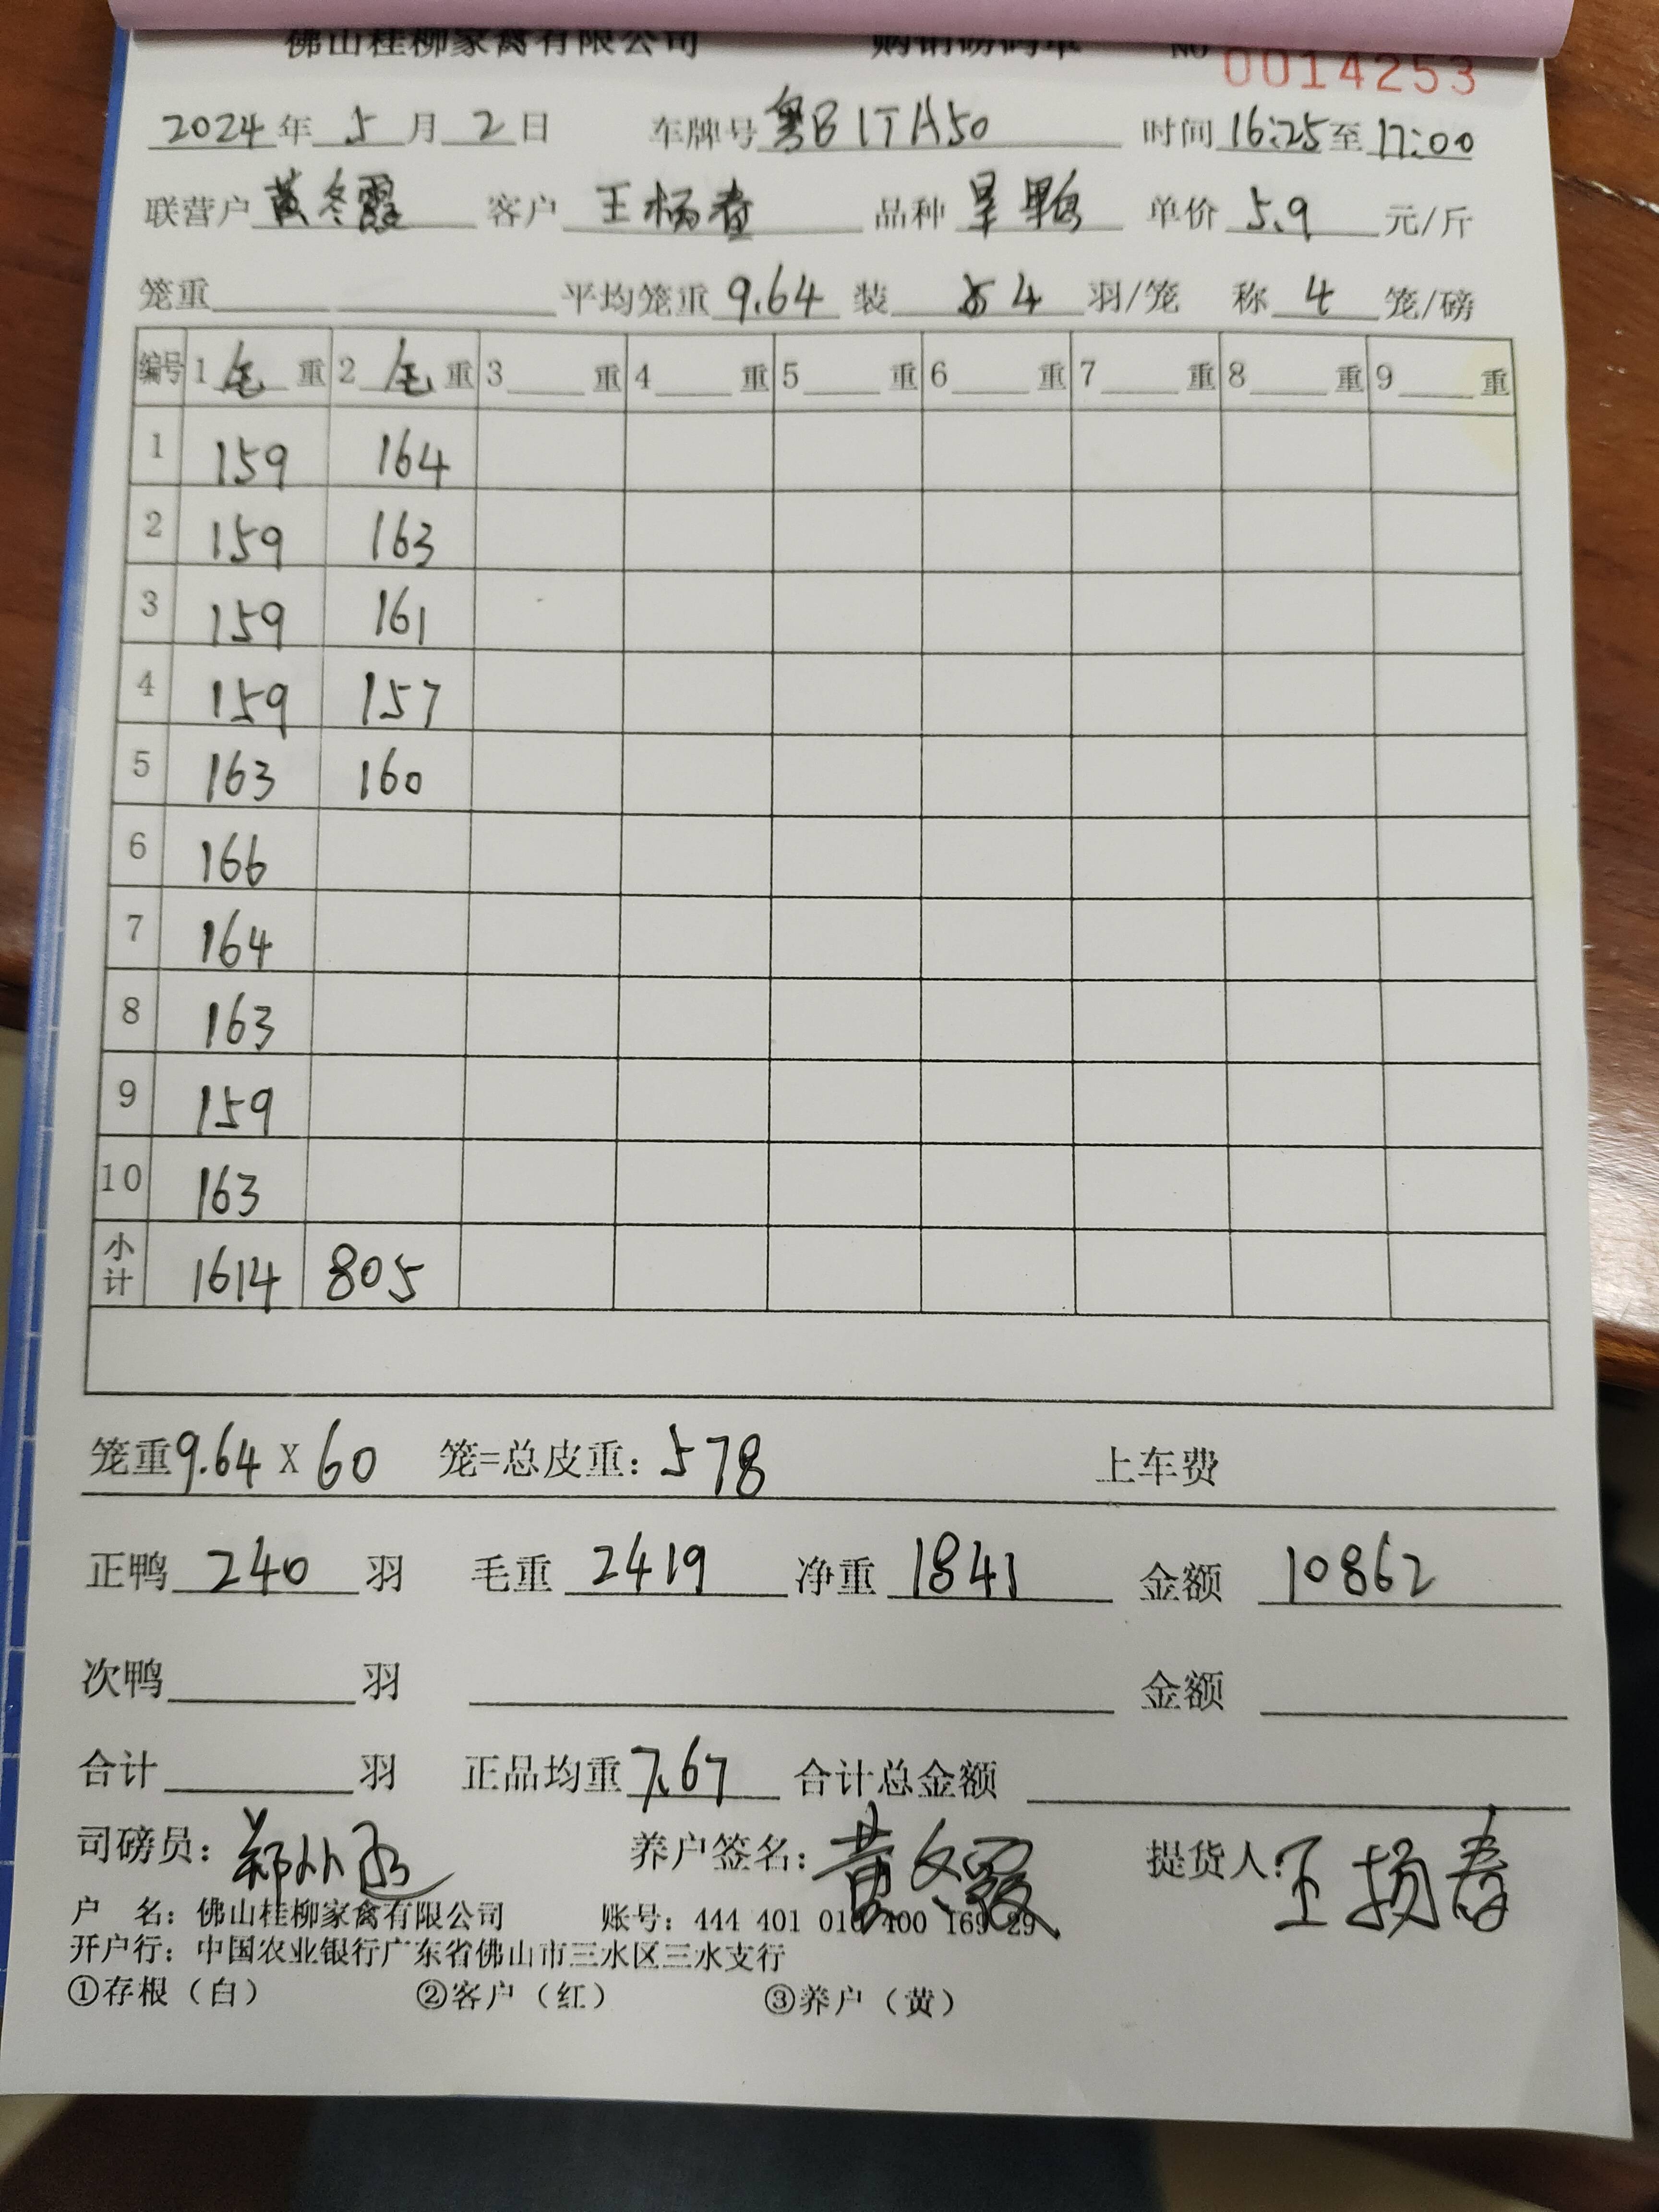 佛山桂柳家禽有限公司 购销磅码单 NO 0014253
2024年 5 月 2 日 车牌号 粤B1TA50 时间 16:25 至 17:00
联营户 黄冬霞 客户 王杨春 品种 旱鸭 单价 5.9 元/斤
笼重 平均笼重 9.64 装 4 羽/笼 称 4 笼/磅
编号 1 毛 重 2 毛 重 3 重 4 重 5 重 6 重 7 重 8 重 9 重
1 159 164
2 159 163
3 159 161
4 159 157
5 163 160
6 166
7 164
8 163
9 159
10 163
小计 1614 805
笼重 9.64 X 60 笼=总皮重: 578 上车费
正鸭 240 羽 毛重 2419 净重 1841 金额 10862
次鸭 羽 金额
合计 羽 正品均重 7.67 合计总金额
司磅员: 养户签名: 黄冬霞 提货人: 王扬春
户 名: 佛山桂柳家禽有限公司 账号: 444 401 010 400 169 29
开户行: 中国农业银行广东省佛山市三水区三水支行
①存根（白） ②客户（红） ③养户（黄）